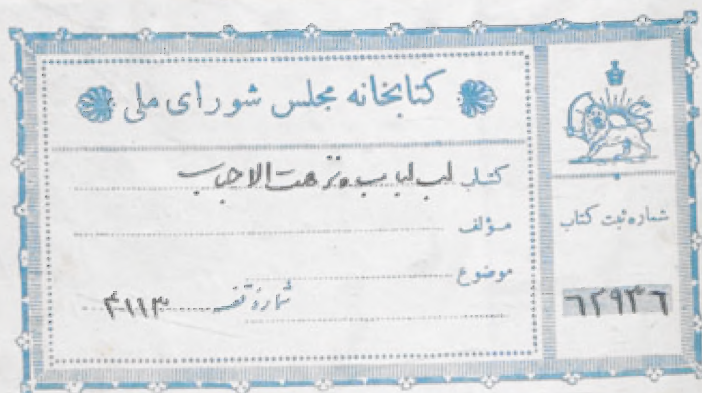 کتابخانه مجلس شورای ملی
کتاب لب لباب ونزهت الاحباب
مؤلف
موضوع
شمارهٔ قفسه ۴۱۱۳
شماره ثبت کتاب
۶۲۹۳۶